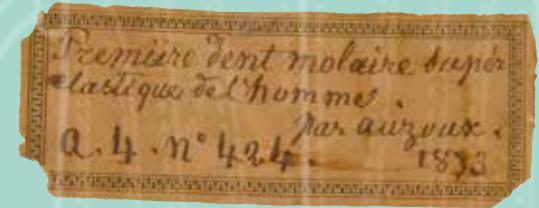 Première dent molaire supér
elastique de l'homme.
par auzoux.
a. 4. n° 424. 1833